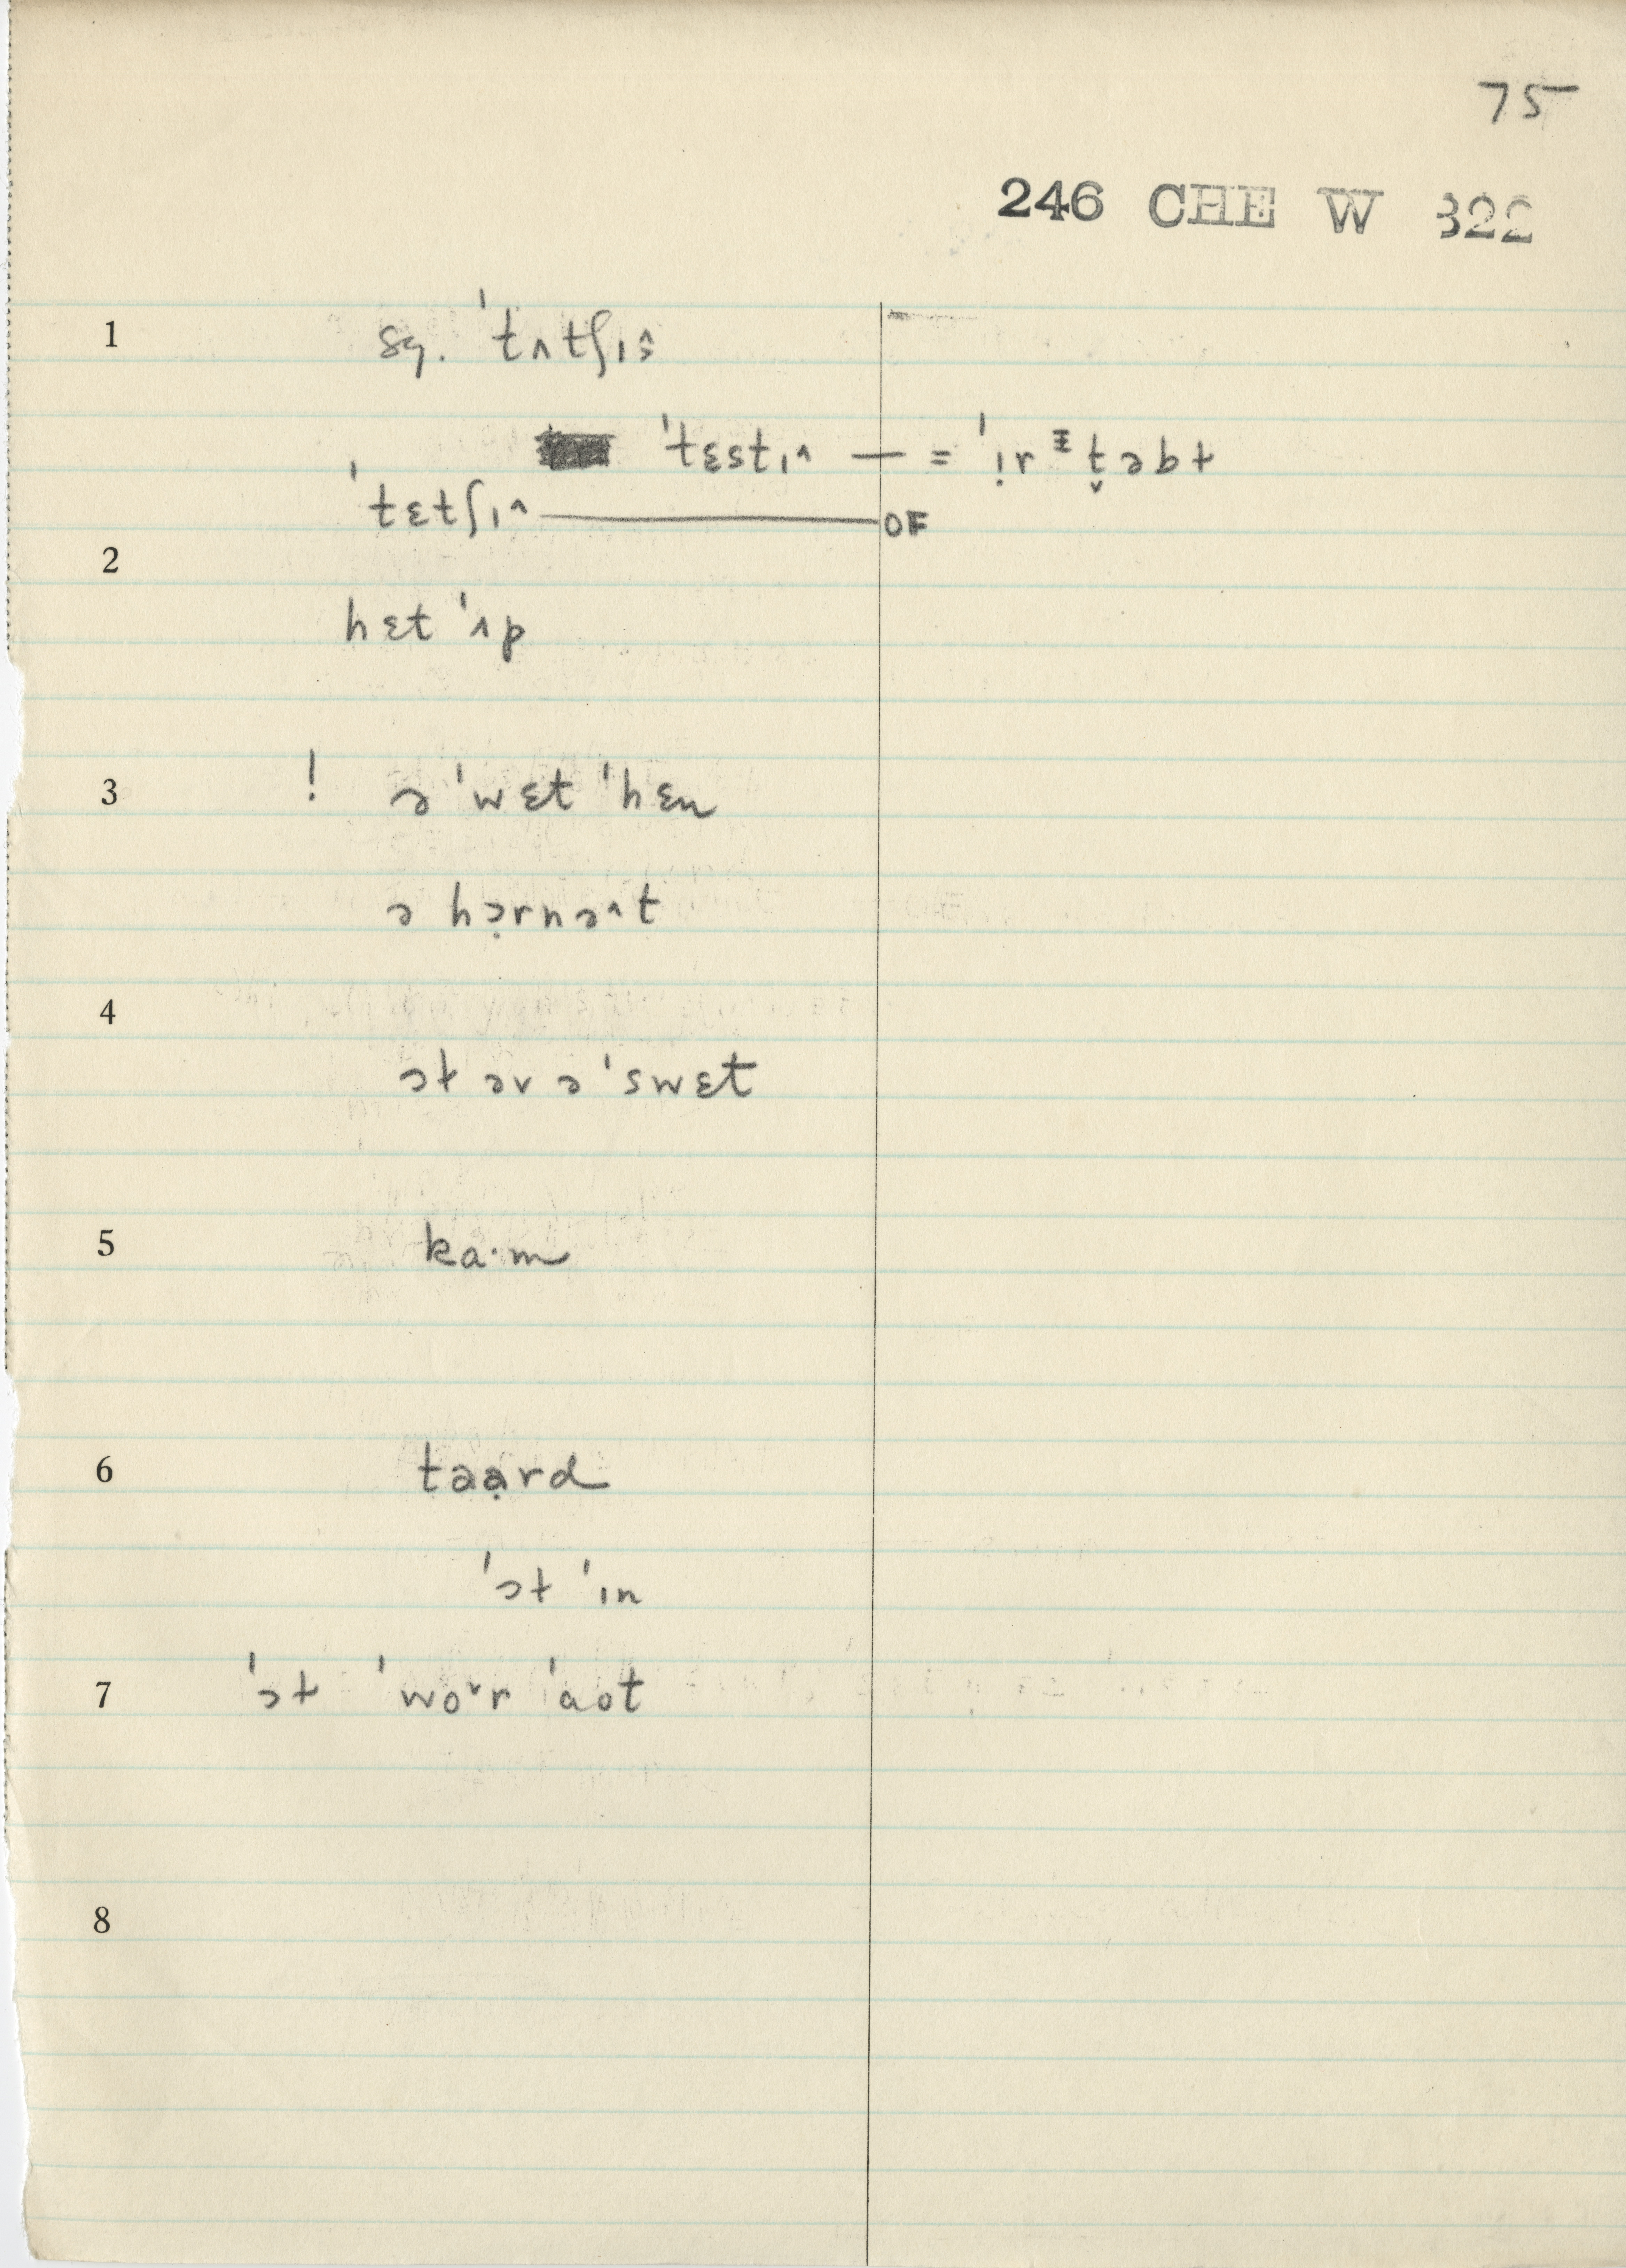 75
246 CHE W 322
1 sg. ˈtʌtʃɪ˄s
ˈtɛstɪ˄ — = ˈɪ̣rᶦṭ̬əbt
ˈtɛtʃɪ˄ — OF
2
hɛt ˈʌp
3 ! ə ˈwɛt ˈhɛn
ə hə̣rnə˄t
4
ɔt əv ə ˈswɛt
5 ka·m
6 taạrd
ˈɔt ˈɪn
7 ˈɔt ˈwo˅r ˈaot
8